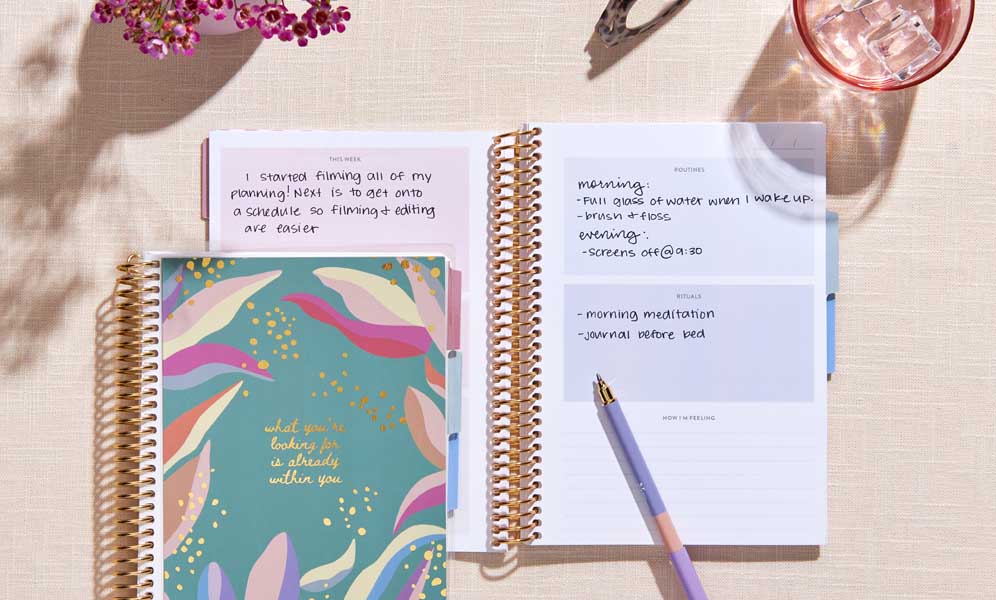 THIS WEEK
I started filming all of my
planning! Next is to get onto
a schedule so filming & editing
are easier
what you're
looking for
is already
within you
/ /
ROUTINES
morning:
- Full glass of water when I wake up.
- brush & floss
evening:
- screens off @ 9:30
RITUALS
- morning meditation
- journal before bed
HOW I'M FEELING